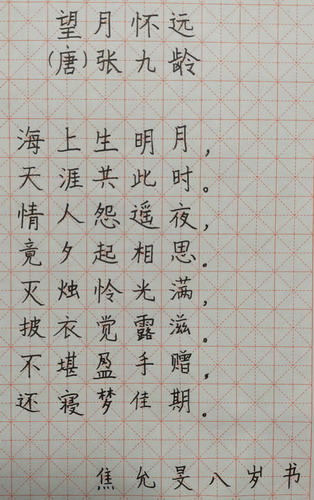 望月怀远
(唐)张九龄
海上生明月，
天涯共此时。
情人怨遥夜，
竟夕起相思。
灭烛怜光满，
披衣觉露滋。
不堪盈手赠，
还寝梦佳期。
焦允旻八岁书